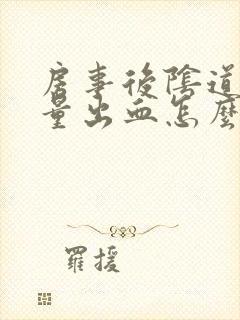 房事後陰道
量出血怎麼
羅援